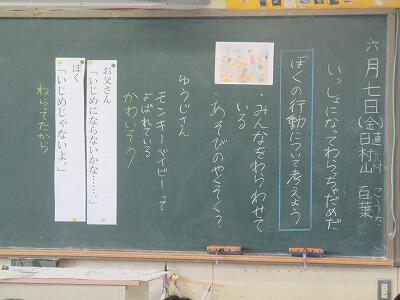 六月七日(金)日直
村山
百葉
いっしょになってわらっちゃだめだ
ぼくの行動について考えよう
・みんなをわらわせて
いる
・あそびのやくそく?
ゆうじさん
モンキーベイビーって
よばれている
かわいそう
お父さん
「いじめにならないかな……。」
ぼく
「いじめじゃないよ。」
わらってたから